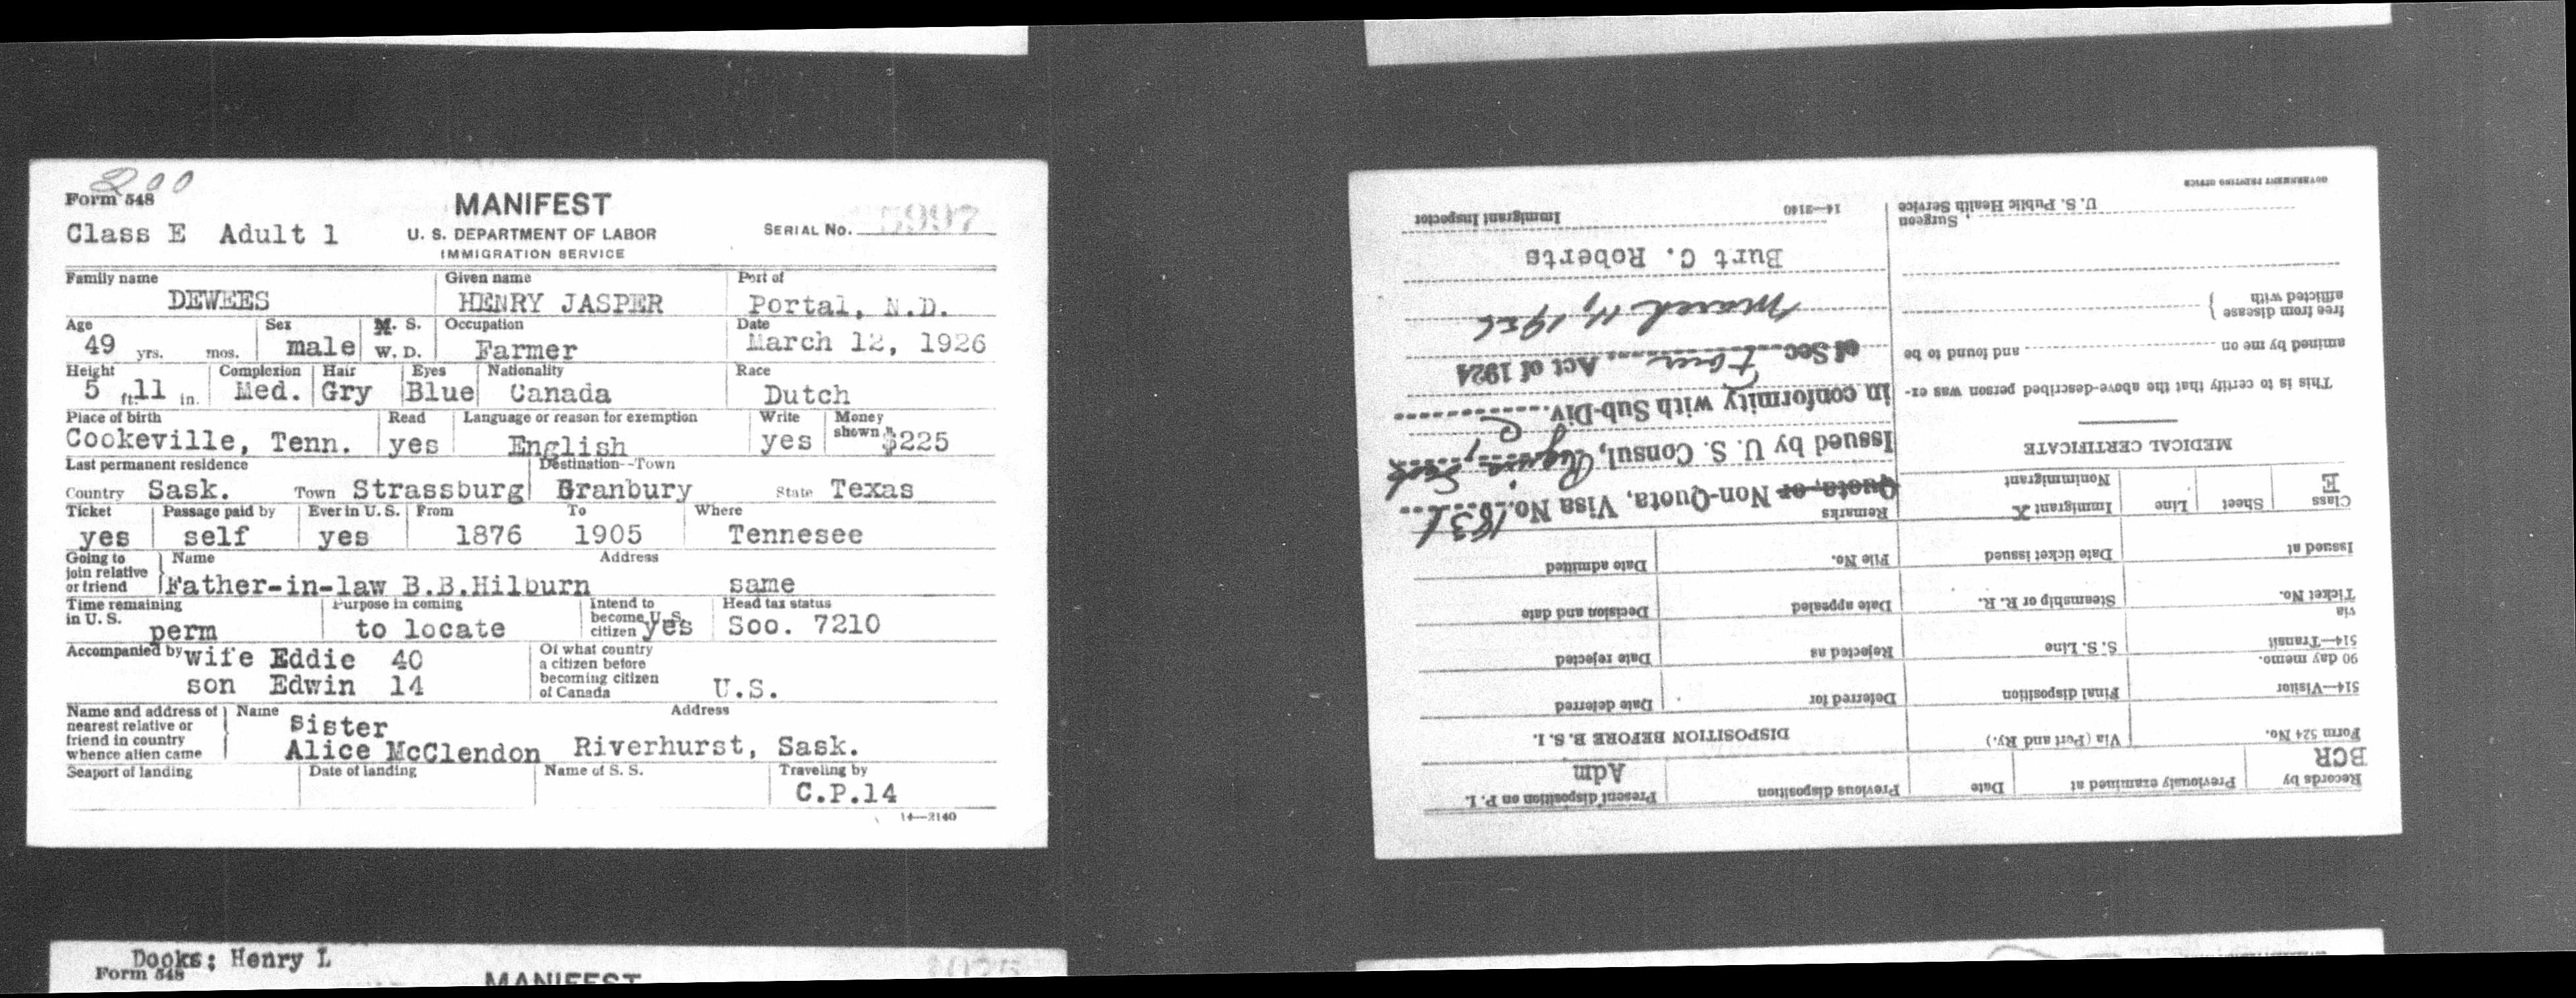 200
Form 548
MANIFEST
Class E Adult 1
U. S. DEPARTMENT OF LABOR
SERIAL No. 5997
IMMIGRATION SERVICE
Family name Given name Port of
DEWEES HENRY JASPER Portal, N.D.
Age Sex M. S. Occupation Date
49 yrs. mos. male W. D. Farmer March 12, 1926
Height Complexion Hair Eyes Nationality Race
5 ft. 11 in. Med. Gry Blue Canada Dutch
Place of birth Read Language or reason for exemption Write Money shown
Cookeville, Tenn. yes English yes $225
Last permanent residence Destination--Town
Country Sask. Town Strassburg Branbury State Texas
Ticket Passage paid by Ever in U. S. From To Where
yes self yes 1876 1905 Tennesee
Going to join relative or friend Name Address
Father-in-law B.B.Hilburn same
Time remaining in U. S. Purpose in coming Intend to become U.S. citizen Head tax status
perm to locate yes Soo. 7210
Accompanied by wife Eddie 40
son Edwin 14
Of what country a citizen before becoming citizen of Canada U.S.
Name and address of nearest relative or friend in country whence alien came Name Address
Sister
Alice McClendon Riverhurst, Sask.
Seaport of landing Date of landing Name of S. S. Traveling by
C.P.14
14—2140
Records by Previously examined at Date Previous disposition Present disposition on P. I.
BCR Adm
Form 524 No. Via (Port and Ry.) DISPOSITION BEFORE B. S. I.
514—Visitor Final disposition Deferred for Date deferred
90 day memo.
514—Transit S. S. Line Rejected as Date rejected
via
Ticket No. Steamship or R. R. Date appealed Decision and date
Issued at Date ticket issued File No. Date admitted
Class Sheet Line Immigrant X Remarks
E Nonimmigrant
Quota, or Non-Quota, Visa No. 1831
Issued by U. S. Consul, Regina, Sask
in conformity with Sub-Div. C
of Sec. four Act of 1924
March 11, 1926
Burt C. Roberts
Immigrant Inspector
14—2140
MEDICAL CERTIFICATE
This is to certify that the above-described person was ex-
amined by me on and found to be
free from disease
afflicted with
, Surgeon
U. S. Public Health Service
GOVERNMENT PRINTING OFFICE
Dooks; Henry L
Form 548
MANIFEST